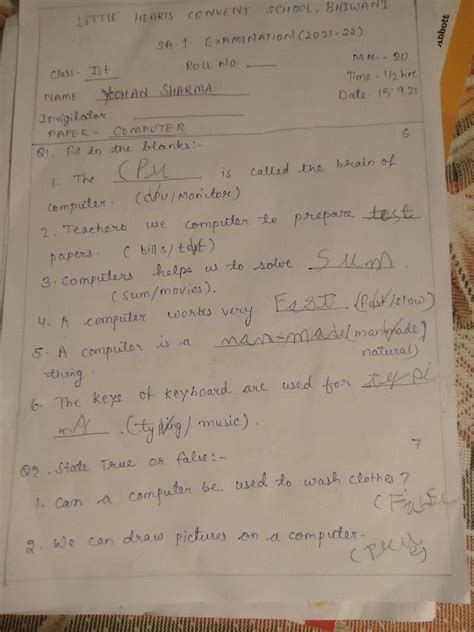 LITTLE HEARTS CONVENT SCHOOL, BHIWANI
SA 1 EXAMINATION (2021-22)
Class- Ist ROLL NO. MM- 20
Time- 1/2 hrs
NAME SHARMA Date- 15'9.21
Invigilator
PAPER- COMPUTER
Q1. Fill in the blanks:- 6
1. The CPU is called the brain of
computer. (CPU/Monitor)
2. Teachers use computer to prepare test
papers. (bills/test)
3. Computers helps us to solve Sum
(sum/movies).
4. A computer works very Fast (Fast/slow)
5. A computer is a man-made (manmade/
natural)
thing.
6. The keys of keyboard are used for typi
ng (typing/music).
7
Q2. State True or false:-
1. Can a computer be used to wash clothes?
(False
2. We can draw pictures on a computer.
(True)
Abbott